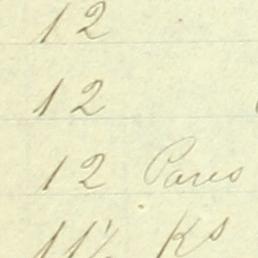 12
12
12 Pares
11½ Ks